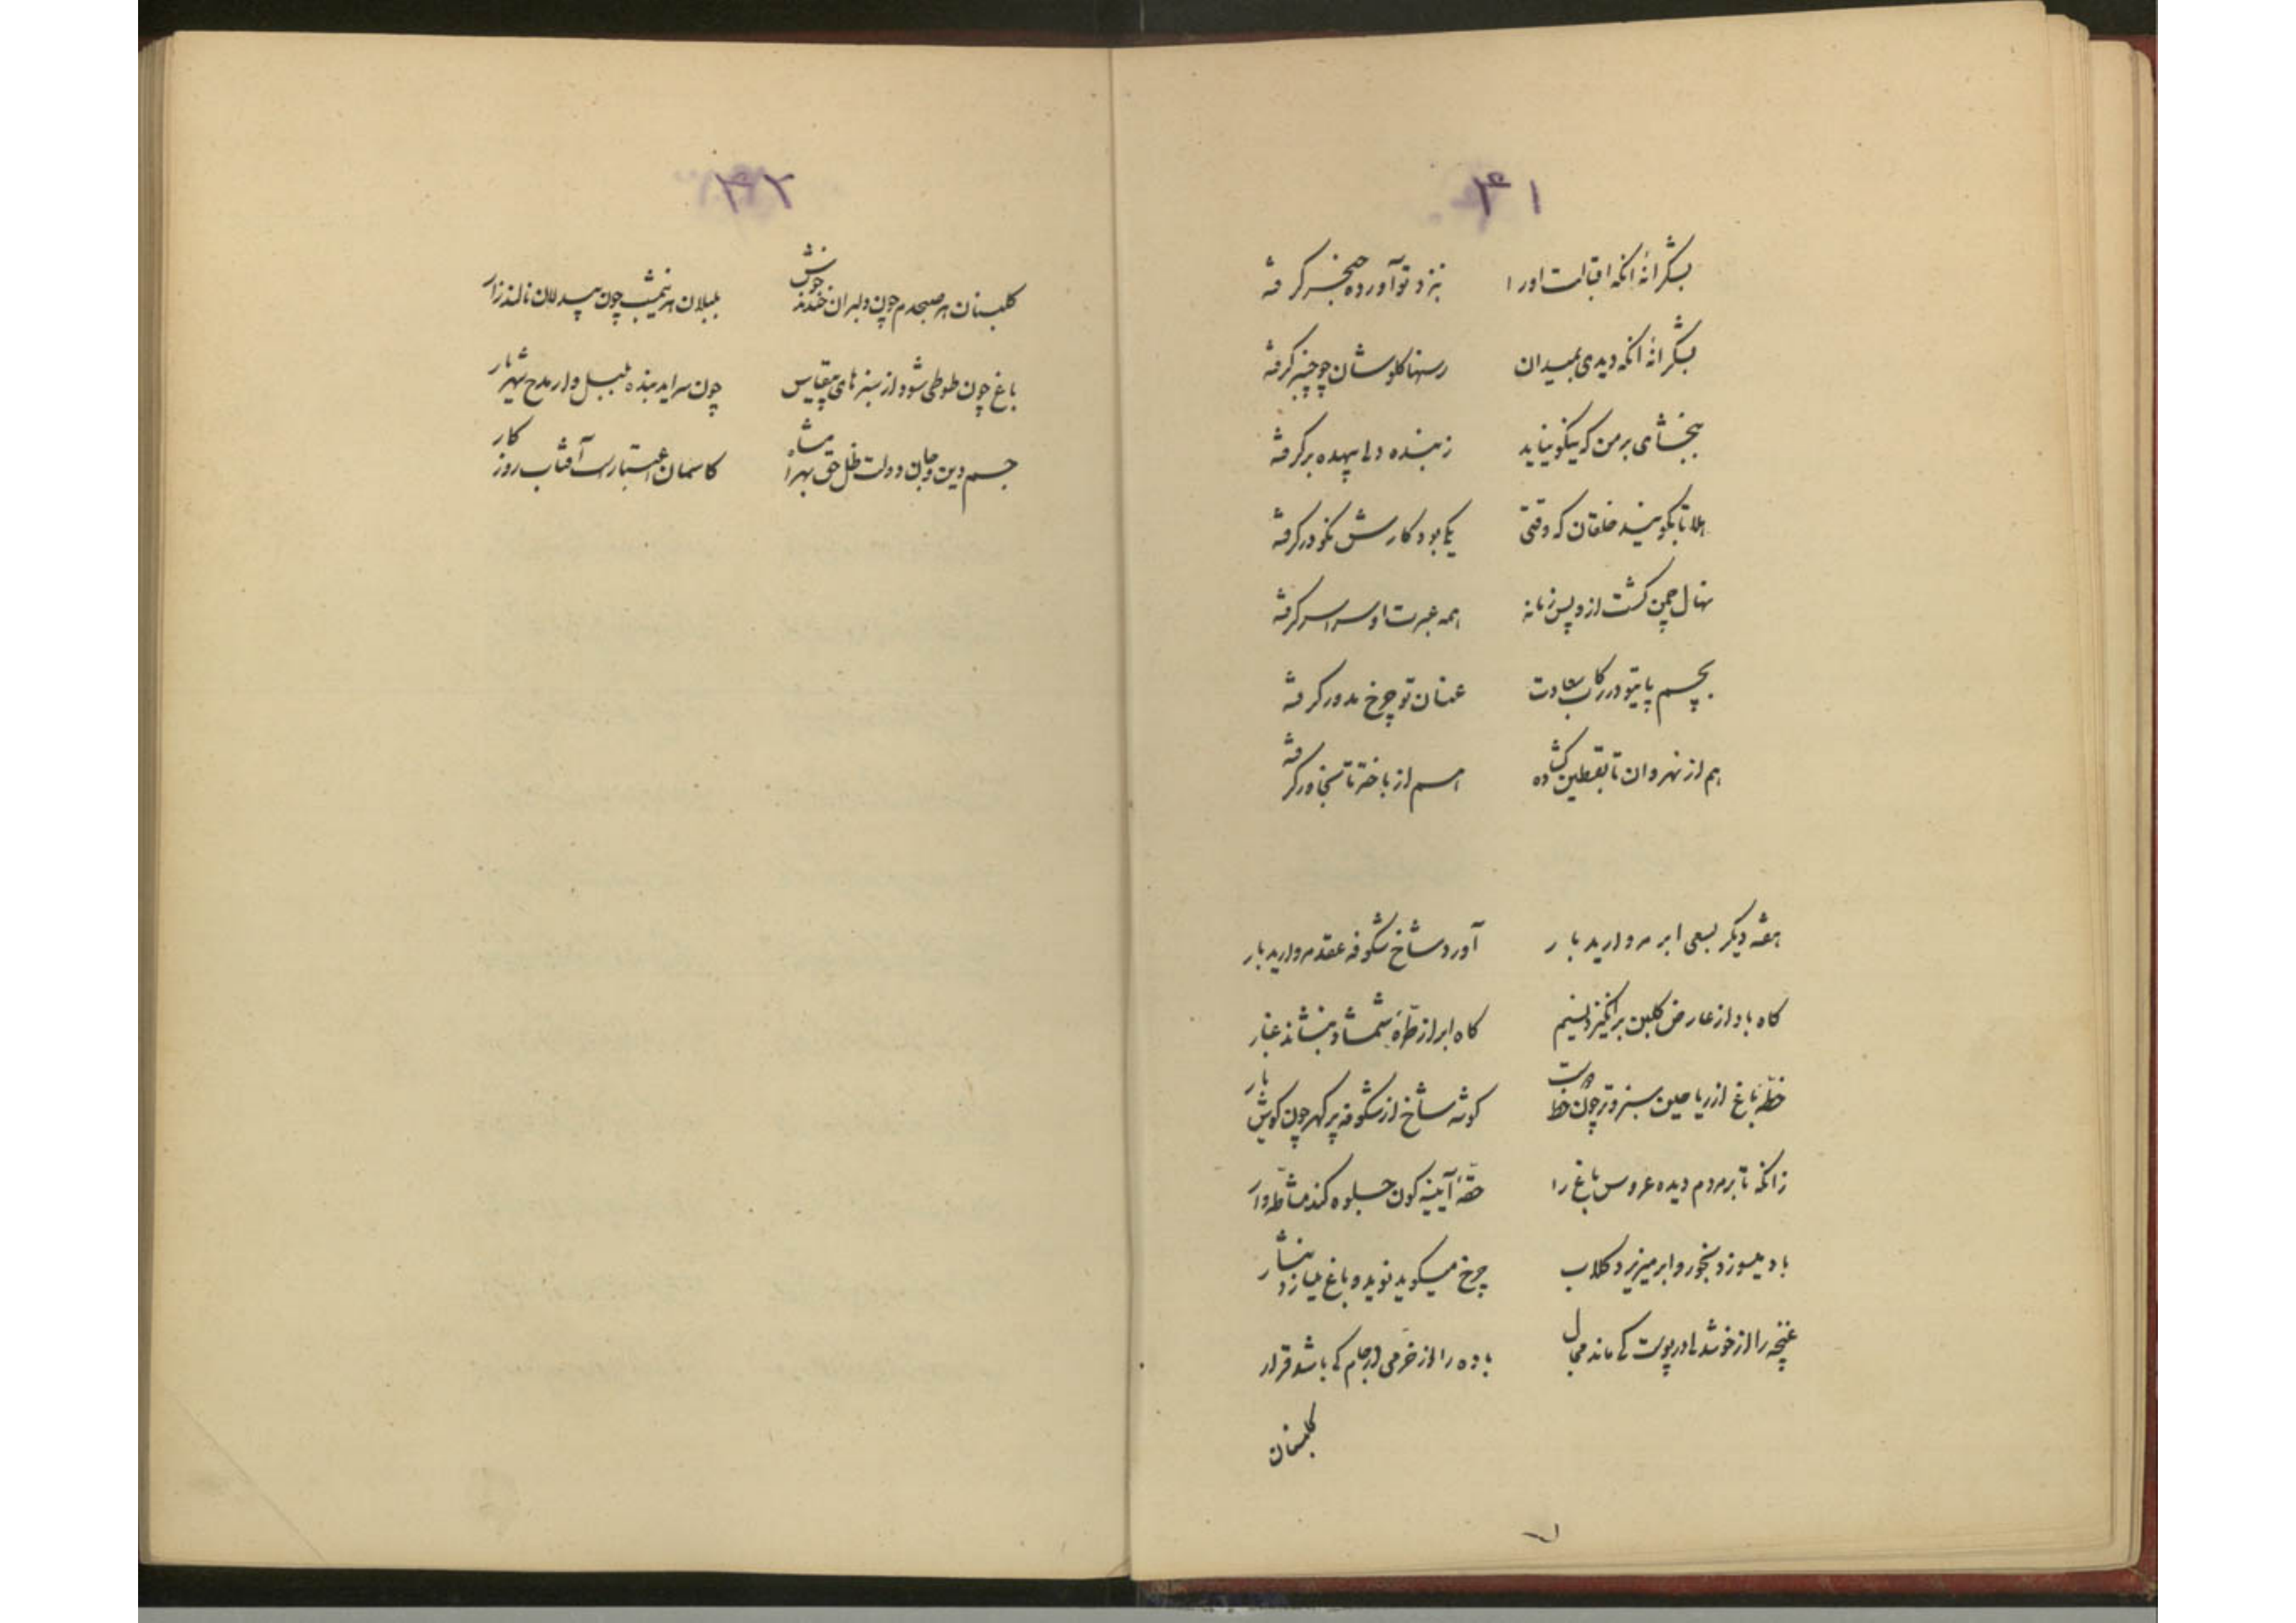 ۴۱
بشکرانهٔ انکه اقبالت اورا بنزد تو آورده صنجر کرفته
بشکرانهٔ انکه دیدی بمیدان رسنها کلوشان چو چنبر کرفته
ببخشای بر من که نیکو نیاید ز بنده دل بیهده بر کرفته
هلا تا بکویند خلقان که وقتی یکی بود کارش نکو در کرفته
نهال چمن کشت از و پس زمانه همه عبرت او سراسر کرفته
بچسم پایتو در رکاب سعادت عنان تو چرخ مدور کرفته
هم از نهروان تا بقطین کشاده هم از باختر تا بخاور کرفته
هفته دیکر بسعی ابر مروارید بار آورد شاخ شکوفه عقد مروارید بار
کاه باد از عارض کلبن برانکیزد نسیم کاه ابر از طرّهٔ شمشاد بنشاند غبار
خطّهٔ باغ از ریاحین سبز و تر چون خط دوست کوشه شاخ از شکوفه پر کهر چون کوش یار
زانکه تا بر مردم دیده عروس باغ را حقّهٔ آیینه کون جلوه کند مشاطه وار
باد میسوزد بخور و ابر میریزد کلاب چرخ میکوید نوید و باغ میسازد نثار
غنچه را از خوشدلی در پوست کی ماند مجال باده را از خرّمی در جام کی باشد قرار
کلبنان
۴۲
کلبنان هر صبحدم چون دلبران خندند خوش بلبلان هر نیمشب چون بیدلان نالند زار
باغ چون طوطی شود از سبزهای بیقیاس چون سراید بنده بلبل وار مدح شهریار
جسم دین و جان دولت ظل حق بهرامشاه کاسمان اعتبارست آفتاب روز کار